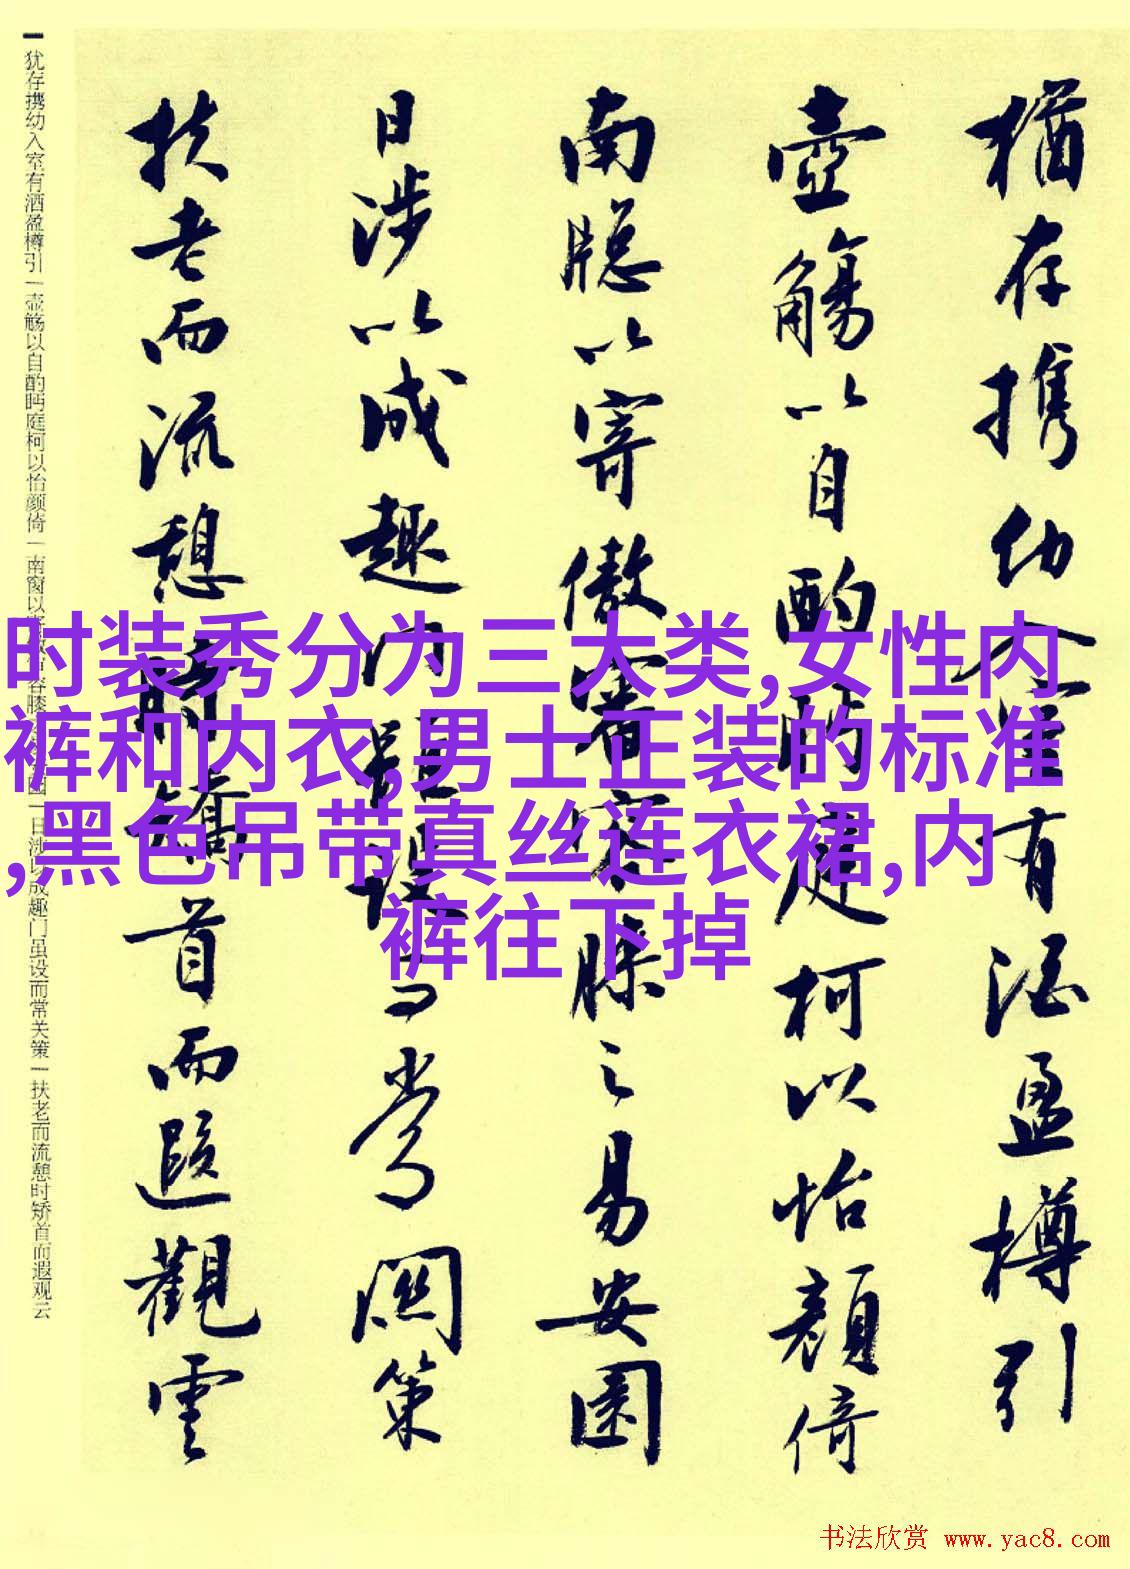 猶存携幼入室有酒盈樽引
壺觴以自酌眄庭柯以怡顔倚
南牕以寄傲審容膝之易安園
日涉以成趣門雖設而常關策
扶老而流憩時矯首而遐觀雲
犹存携幼入室有酒盈樽引一壶觞以自酌眄庭柯以怡颜倚一南窗以寄
容膝
日涉以成趣门虽设而常关策一扶老而流憩时矫首而遐观云
时装秀分为三大类,女性内
裤和内衣,男士正装的标准
,黑色吊带真丝连衣裙,内
裤往下掉
书法欣赏 www.yac8.com